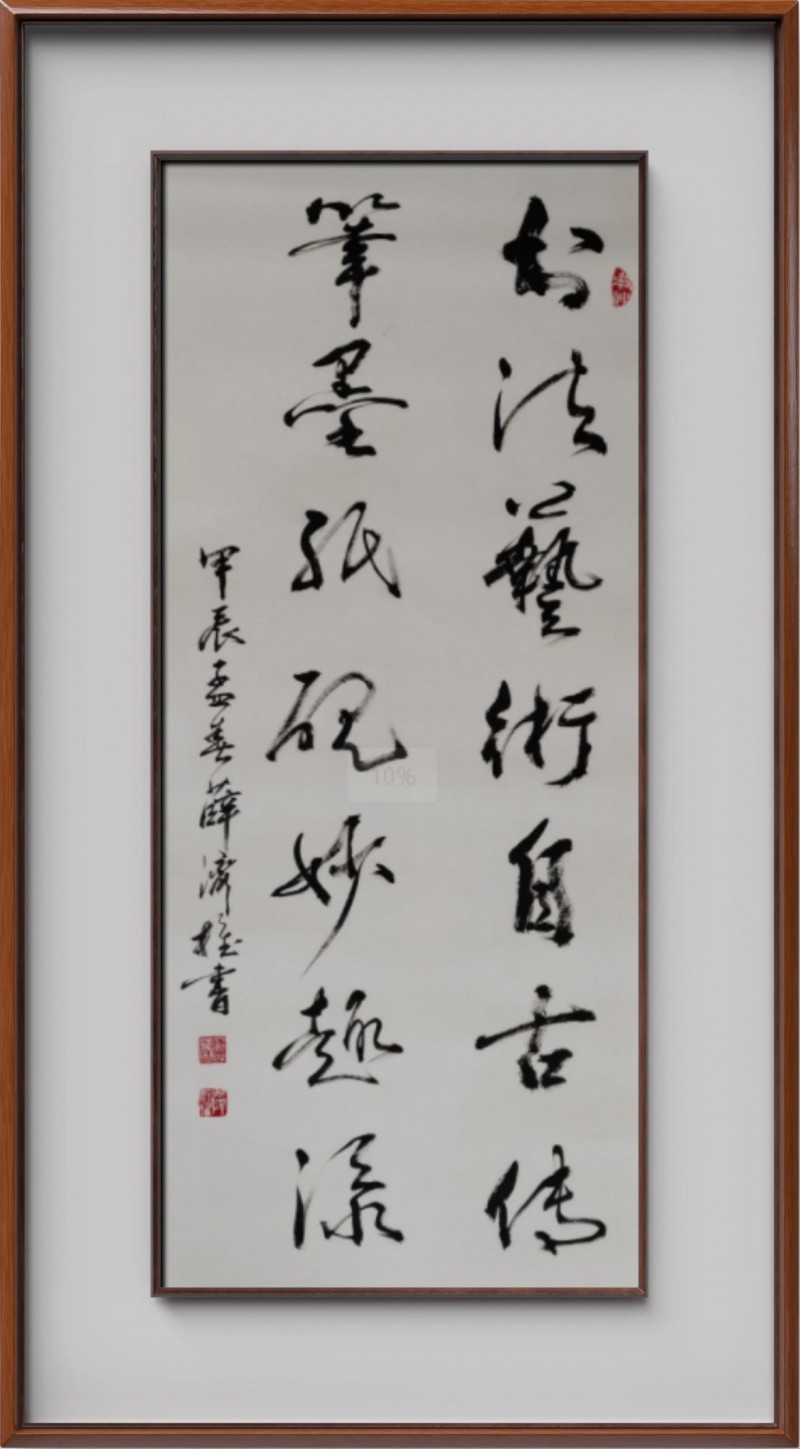 书法藝術自古傳
筆墨紙硯妙趣添
甲辰孟春薛濟 書
10%